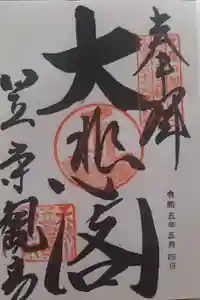 奉拝
大悲閣
笠森観音
令和五年五月四日